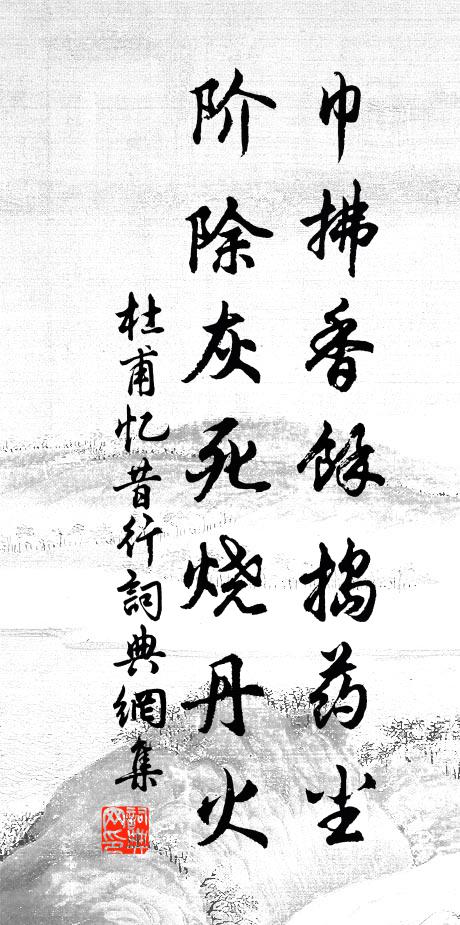 巾拂香餘搗药尘
阶除灰死烧丹火
杜甫忆昔行詞典網集